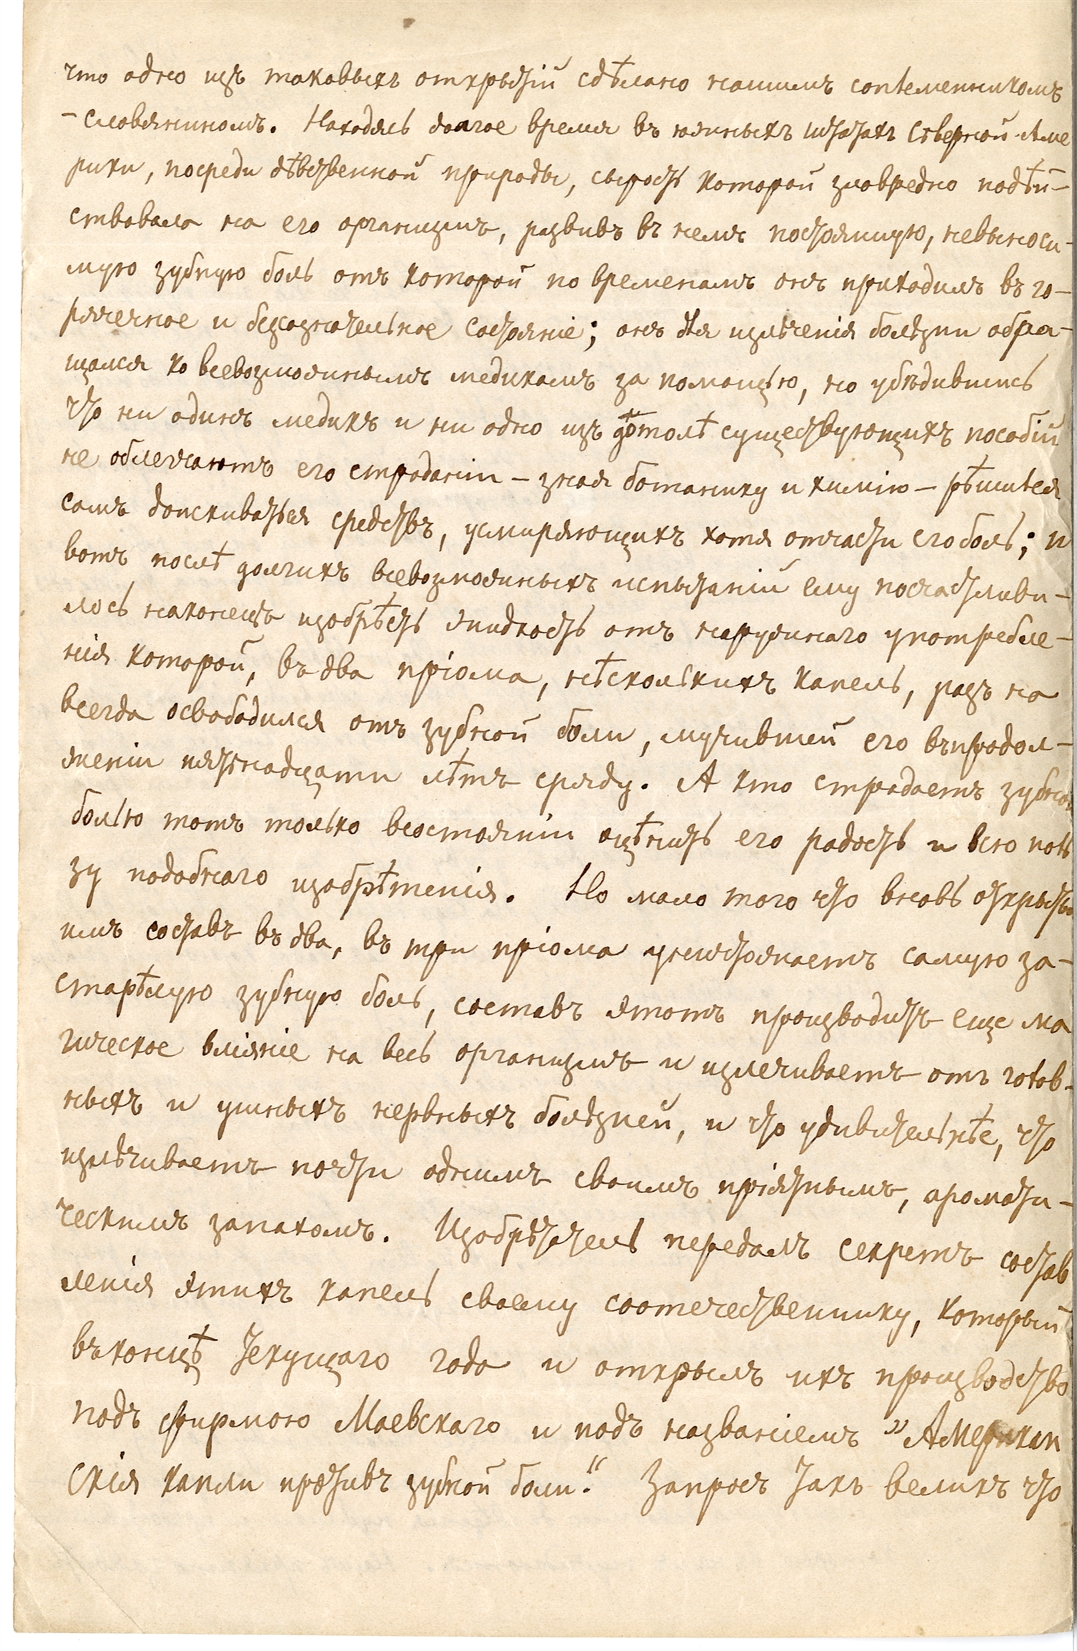 что одно изъ таковыхъ открытій сдѣлано нашимъ соплеменникомъ
-словяниномъ. Находясь долгое время въ южныхъ штатахъ Сѣверной Аме
рики, посреди дѣвственной природы, сырость которой зловредно подѣй-
ствовала на его организмъ, развивъ въ немъ постоянную, невыноси-
мую зубную боль отъ которой по временамъ онъ приходилъ въ го-
рячечное и безсознательное состояніе; онъ для излѣченія болѣзни обра-
щался ко всевозможнымъ медикамъ за помощью, но убѣдившись
что ни одинъ медикъ и ни одно изъ дотолѣ существующихъ пособій
не облегчаютъ его страданій – зная ботанику и химію – рѣшился
самъ доискиваться средствъ, усмиряющихъ хотя отчасти его боль; и
вотъ послѣ долгихъ всевозможныхъ испытаній ему посчастливи-
лось наконецъ изобрѣсть жидкость отъ наружнаго употребле-
нія которой, въ два пріома, нѣсколькихъ капель, разъ на
всегда освободился отъ зубной боли, мучившей его впродол-
женіи пятнадцати лѣтъ сряду. А кто страдаетъ зубною
болью тотъ только всостояніи оцѣнить его радость и всю поль
зу подобнаго изобрѣтенія. Но мало того что вновь открытый
имъ составъ въ два, въ три пріома уничтожаетъ самую за-
старѣлую зубную боль, составъ этотъ производитъ еще ма
гическое вліяніе на весь организмъ и излечиваетъ отъ голов-
ныхъ и ушныхъ нервныхъ болѣзней, и что удивительнѣе, что
излѣчиваетъ почти однимъ своимъ пріятнымъ, аромати-
ческимъ запахомъ. Изобрѣтатель передалъ секретъ состав
ленія этихъ капель своему соотечественнику, который
въ концѣ текущаго года и открылъ ихъ производство
подъ фирмою Маевскаго и подъ названіемъ „Американ
скія капли противъ зубной боли.“ Запросъ такъ великъ что